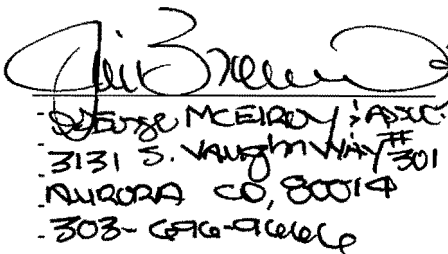 Jim Brown
George McElroy & Assoc.
3131 S. Vaughn Way #301
AURORA CO, 80014
303-696-9666